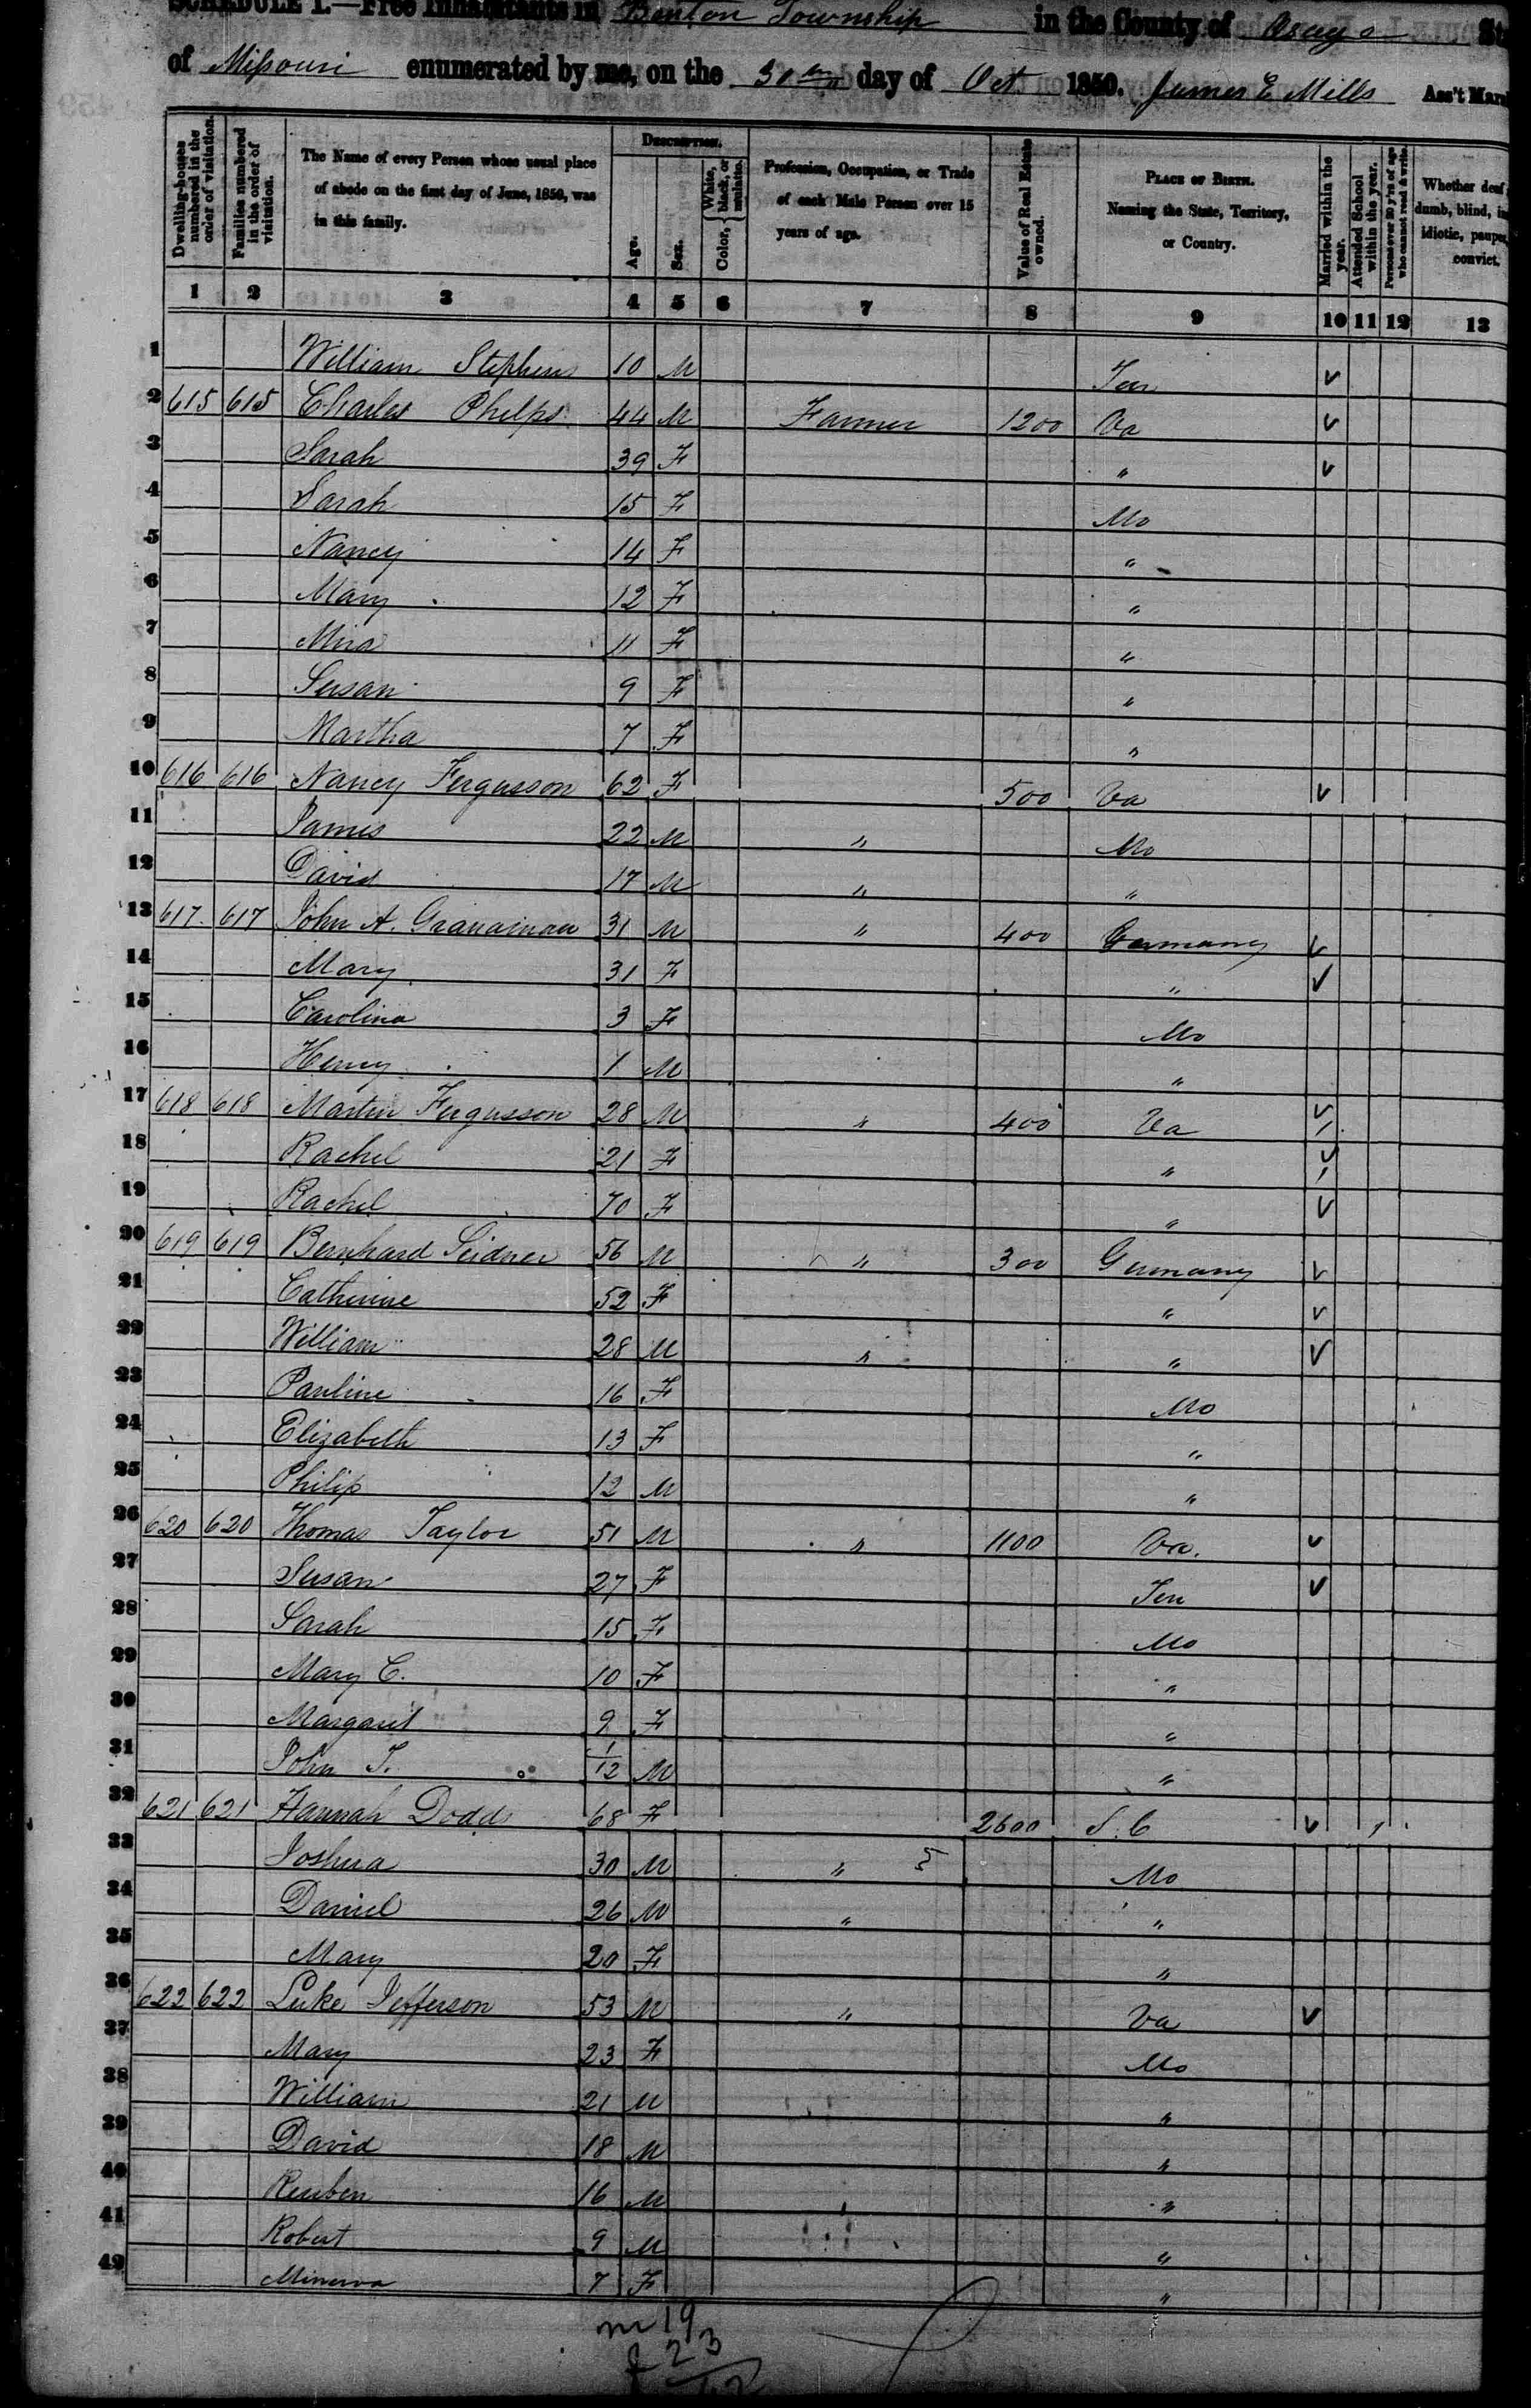 SCHEDULE I.—Free Inhabitants in Benton Township in the County of Osage
of Missouri enumerated by me, on the 30th day of Oct 1850. James E Mills Ass't Mars
Dwelling-houses numbered in the order of visitation.
Families numbered in the order of visitation.
The Name of every Person whose usual place of abode on the first day of June, 1850, was in this family.
DESCRIPTION.
Age.
Sex.
Color, { White, black, or mulatto.
Profession, Occupation, or Trade of each Male Person over 15 years of age.
Value of Real Estate owned.
PLACE OF BIRTH. Naming the State, Territory, or Country.
Married within the year.
Attended School within the year.
Persons over 20 y'rs of age who cannot read & write.
Whether deaf dumb, blind, in idiotic, pauper, convict.
1 2 3 4 5 6 7 8 9 10 11 12 13
1 William Stephens 10 M Ten ✓
2 615 615 Charles Phelps 44 M Farmer 1200 Va ✓
3 Sarah 39 F " ✓
4 Sarah 15 F Mo
5 Nancy 14 F "
6 Mary 12 F "
7 Mira 11 F "
8 Susan 9 F "
9 Martha 7 F "
10 616 616 Nancy Fergusson 62 F 500 Va ✓
11 James 22 M " Mo
12 David 17 M " "
13 617 617 John A. 31 M " 400 Germany ✓
14 Mary 31 F " ✓
15 Carolina 3 F Mo
16 Henry 1 M "
17 618 618 Martin Fergusson 28 M " 400 Va ✓
18 Rachel 21 F " ✓
19 Rachel 70 F " ✓
20 619 619 Bernhard Seidner 56 M " 300 Germany ✓
21 Catherine 52 F " ✓
22 William 28 M " " ✓
23 Pauline 16 F Mo
24 Elizabeth 13 F "
25 Philip 12 M "
26 620 620 Thomas Taylor 51 M " 1100 Va. ✓
27 Susan 27 F Ten ✓
28 Sarah 15 F Mo
29 Mary C. 10 F "
30 Margaret 9 F "
31 John T. 1/12 M "
32 621 621 Hannah Dodds 68 F 2600 S.C ✓ 1
33 Joshua 30 M " Mo
34 Daniel 26 M " "
35 Mary 20 F "
36 622 622 Luke Jefferson 53 M " Va ✓
37 Mary 23 F Mo
38 William 21 M "
39 David 18 M "
40 Reuben 16 M "
41 Robert 9 M "
42 Minerva 7 F "
m 19
f 23
42